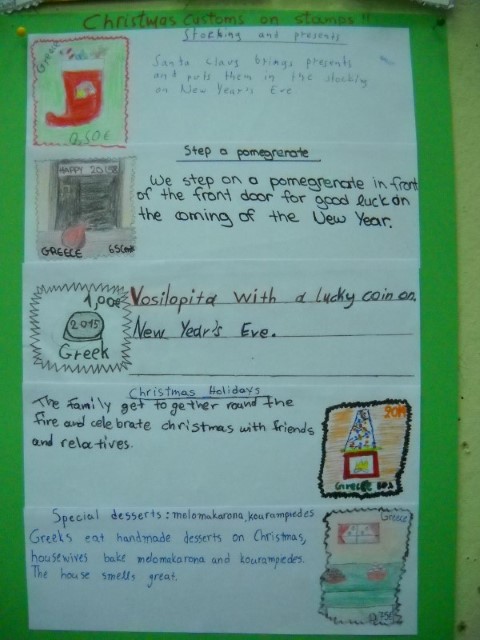 Christmas customs on stamps!!
Stocking and presents
Greece
Santa Claus brings presents
and puts them in the stocking
on New Year's Eve
0,50€
Step a pomegrenate
HAPPY 2015
We step on a pomegrenate in front
of the front door for good luck on
the coming of the New Year.
GREECE 65Cent
1,00€
2015
Greek
Vosilopita with a lucky coin on
New Year's Eve.
Christmas Holidays
The family get together round the
fire and celebrate christmas with friends
and relatives.
2014
Greece
Special desserts: melomakarona, kourampiedes
Greeks eat handmade desserts on Christmas,
housewives bake melomakarona and kourampiedes.
The house smells great.
Greece
0,75€